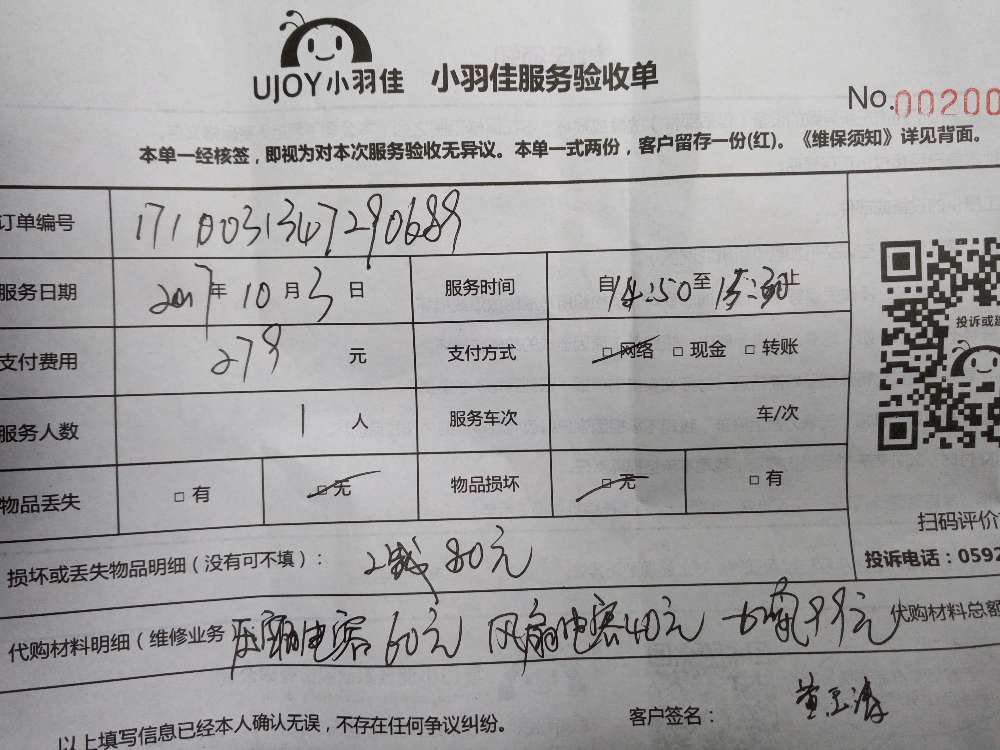 UJOY小羽佳 小羽佳服务验收单
No.00200
本单一经核签，即视为对本次服务验收无异议。本单一式两份，客户留存一份(红)。《维保须知》详见背面。
订单编号 171003134729068​9
服务日期 2017年10月3日 服务时间 自14:50至15:30止
支付费用 279 元 支付方式 □ 网络 □ 现金 □ 转账
投诉或建
服务人数 1 人 服务车次 车/次
物品丢失 □ 有 □ 无 物品损坏 □ 无 □ 有
扫码评价
损坏或丢失物品明细（没有可不填）： 80元
投诉电话：0592
代购材料明细（维修业务 压缩电容60元 风扇电容40元 99元 代购材料总额
以上填写信息已经本人确认无误，不存在任何争议纠纷。 客户签名： 黄